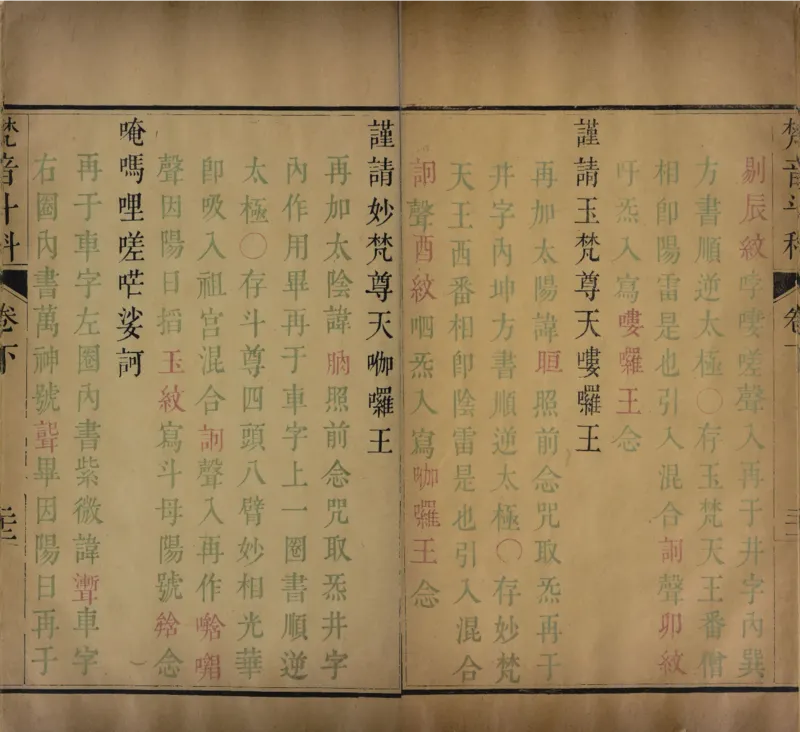 梵音斗科 卷下
剔辰紋嘍嗟聲入再于井字內巽
方書順逆太極〇存玉梵天王番僧
相卽陽雷是也引入混合訶聲卯紋
吁炁入寫嘍囉王念
謹請玉梵尊天嘍囉王
再加太陽諱晅照前念咒取炁再于
井字內坤方書順逆太極〇存妙梵
天王西番相卽陰雷是也引入混合
訶聲酉紋呬炁入寫咖囉王念
謹請妙梵尊天咖囉王
再加太陰諱朒照前念咒取炁井字
內作用畢再于車字上一圈書順逆
太極〇存斗尊四頭八臂妙相光華
卽吸入祖宮混合訶聲入再作唅
聲因陽日搯玉紋寫斗母陽號念
唵嗎哩嗟娑訶
再于車字左圈內書紫微諱車字
右圈內書萬神號聻畢因陽日再于
梵音斗科 卷下